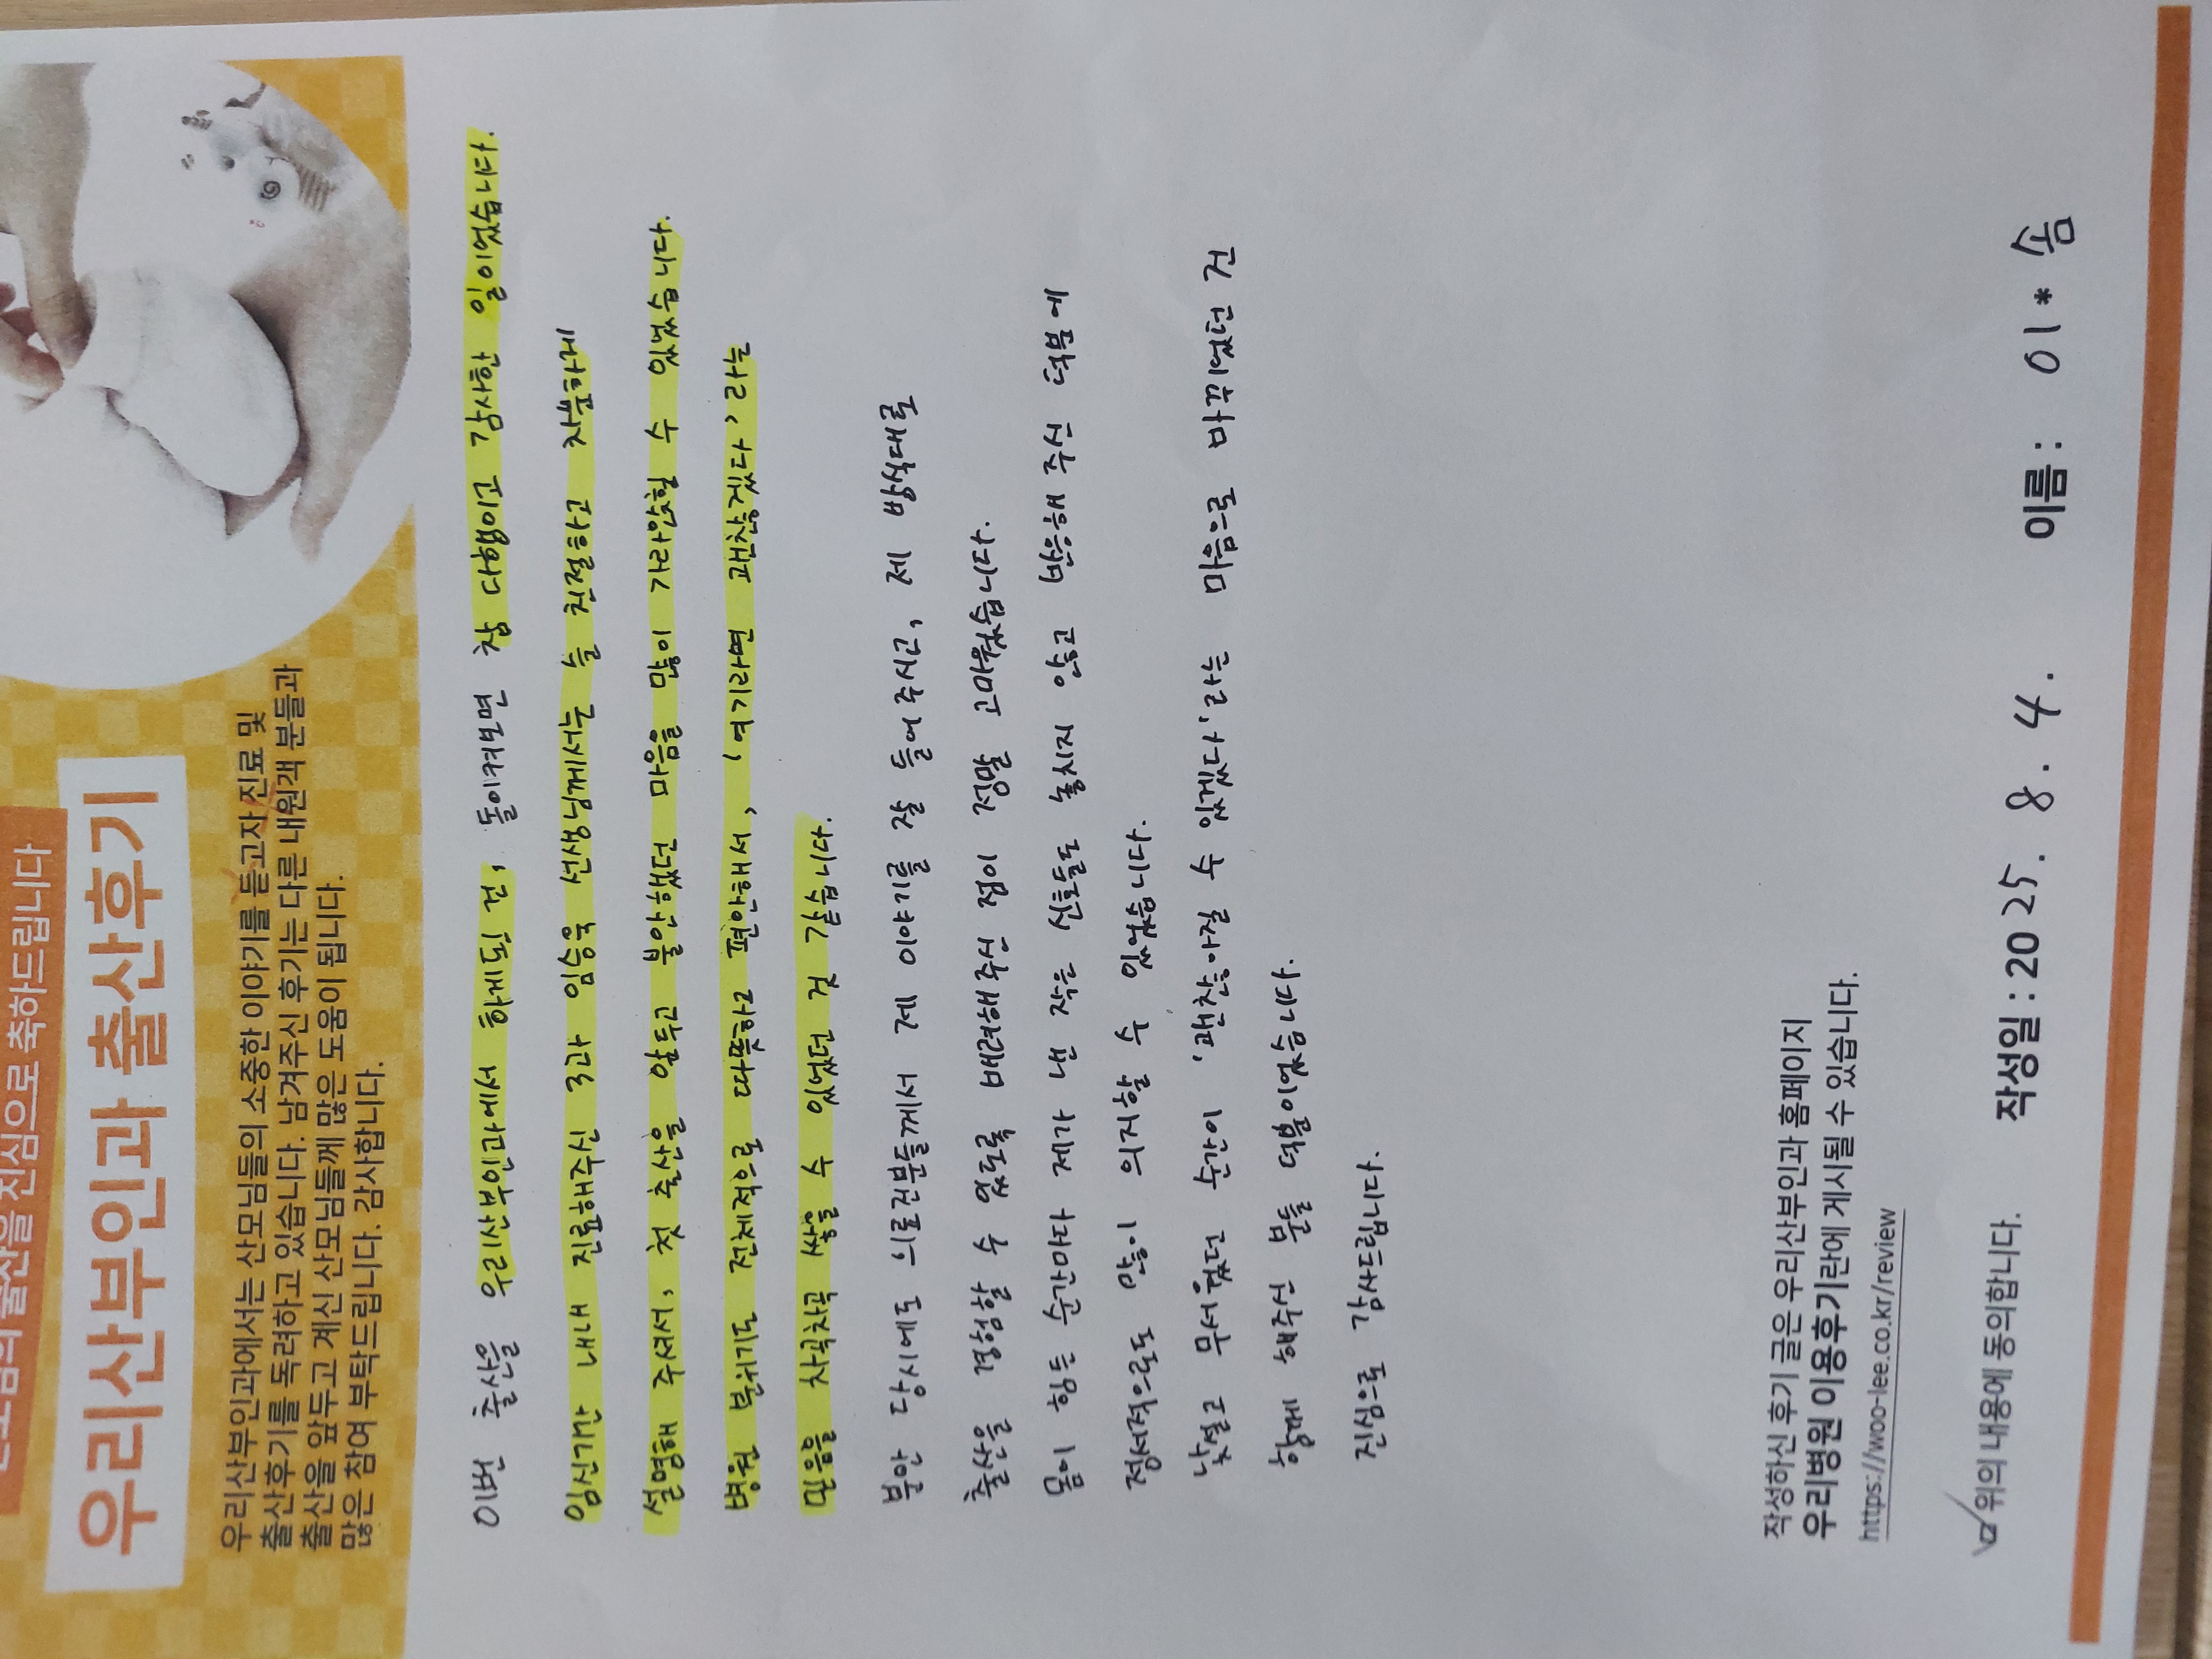 산모님의 출산을 진심으로 축하드립니다
우리산부인과 출산후기
우리산부인과에서는 산모님들의 소중한 이야기를 듣고자 진료 및
출산후기를 독려하고 있습니다. 남겨주신 후기는 다른 내원객 분들과
출산을 앞두고 계신 산모님들께 많은 도움이 됩니다.
많은 참여 부탁드립니다. 감사합니다.
이번 출산을 우리산부인과에서 하게된 건, 돌이켜보면 참 다행이고 감사한 일이었습니다.
임신기간 내내 진료해주신 3과 임승욱 선생님께서는 늘 친절하고 자분하게
설명해 주셔서, 첫 출산을 앞두고 불안했던 마음을 많이 가라앉힐 수 있었습니다.
병원 분위기도 전체적으로 따뜻하고 편안해서, '여기라면 괜찮겠다'라는
믿음을 차곡차곡 쌓을 수 있었던 것 같습니다.
분만 당시에도 의료진분들께서 제 이야기를 잘 들어주시고, 제 방식대로
출산을 경험할 수 있도록 배려해주신 점이 정말 고마웠습니다.
몸이 힘든 순간마다 제가 낸 작은 신호들도 놓치지 않고 반응해 주신 덕분에
정서적으로도 많이 의지할 수 있었습니다.
낯설고 무서웠던 순간이 '괜찮아질 수 있겠다'라는 마음으로 바뀌었던 건
함께 해주신 분들 덕분이었습니다.
진심으로 감사드립니다.
작성하신 후기 글은 우리산부인과 홈페이지
우리병원 이용후기란에 게시될 수 있습니다.
https://woo-lee.co.kr/review
위의 내용에 동의합니다.
작성일 : 2025. 8. 4. 이름 : 이*솜